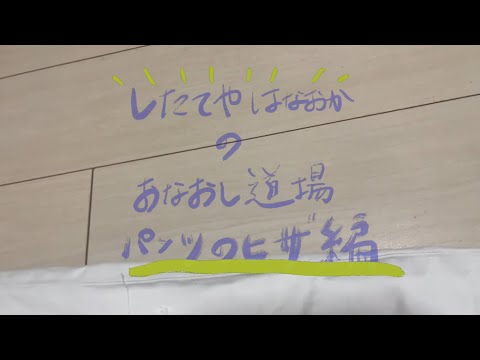 したてやはなおか
の
あなおし道場
パンツのヒザ編